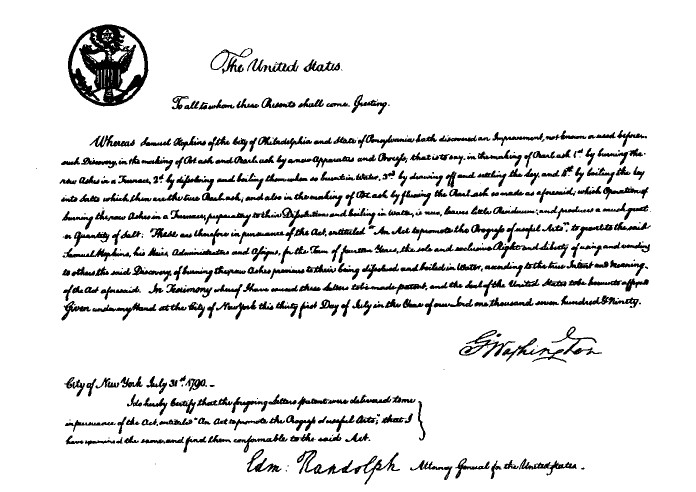 The United States.
To all to whom these Presents shall come. Greeting.
Whereas Samuel Hopkins of the City of Philadelphia and State of Pensylvania hath discovered an Improvement, not known or used before
such Discovery, in the making of Pot ash and Pearl ash by a new Apparatus and Process, that is to say, in the making of Pearl ash 1st by burning the
raw Ashes in a Furnace, 2d by dissolving and boiling them when so burnt in Water, 3rd by drawing off and settling the Ley, and 4th by boiling the Ley
into Salts which then are the true Pearl ash, and also in the making of Pot ash by fluxing the Pearl ash so made as aforesaid; which Operation of
burning the raw Ashes in a Furnace, preparatory to their Dissolution and boiling in Water, is new, leaves little Residuum; and produces a much great
er Quantity of Salt: These are therefore in pursuance of the Act, entitled "An Act to promote the Progress of useful Arts", to grant to the said
Samuel Hopkins, his Heirs, Administrators and Assigns, for the Term of fourteen Years, the sole and exclusive Right and Liberty of using and vending
to others the said Discovery, of burning the raw Ashes previous to their being dissolved and boiled in Water, according to the true Intent and Meaning
of the Act aforesaid. In Testimony whereof I have caused these Letters to be made patent, and the Seal of the United States to be hereunto affixed
Given under my Hand at the City of New York this thirty first Day of July in the Year of our Lord one thousand seven hundred & Ninety.
G. Washington
City of New York July 31st 1790. -
I do hereby Certify that the foregoing Letters patent were delivered to me
in pursuance of the Act, entitled "An Act to promote the Progress of useful Arts"; that I
have examined the same, and find them conformable to the said Act.
Edm: Randolph Attorney General for the United States.